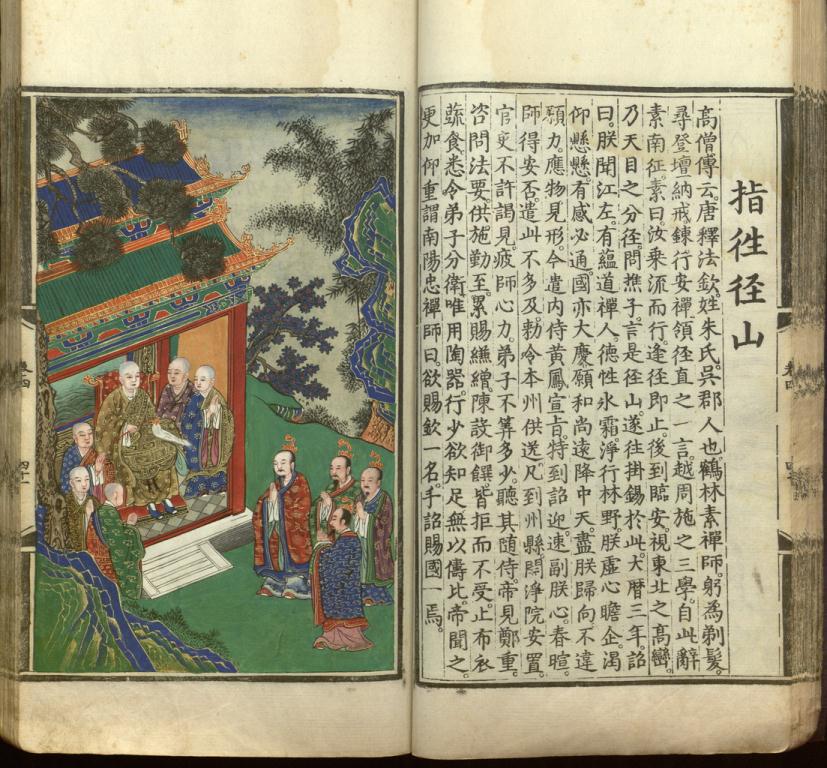 指徃径山
高僧傳云。唐釋法欽。姓朱氏。吳郡人也。鶴林素禪師。躬為剃髮。
尋登壇納戒。鍊行安禪。領徑直之一言。越周施之三學。自此辭
素南征。素曰。汝乘流而行。逢徑即止。後到臨安。視東北之高巒。
乃天目之分徑。問樵子。言是徑山。遂往掛錫於此。大曆三年。詔
曰。朕聞江左。有蘊道禪人。德性氷霜。淨行林野。朕虛心瞻企。渴
仰懸懸。有感必通。國亦大慶。願和尚遠降中天。盡朕歸向。不違
願力。應物見形。今遣内侍黃鳳宣旨。特到詔迎。速副朕心。春暄。
師得安否。遣此不多及。勑令本州供送。凡到州縣。開淨院安置。
官吏不許謁見。疲師心力。弟子不筭多少。聽其随侍。帝見鄭重。
咨問法要。供施勤至。累賜縑繒。陳設御饌。皆拒而不受。止布衣
蔬食。悉令弟子分衛。唯用陶器。行少欲知足。無以儔比。帝聞之。
更加仰重。謂南陽忠禪師曰。欲賜欽一名。手詔賜國一焉。
卷四